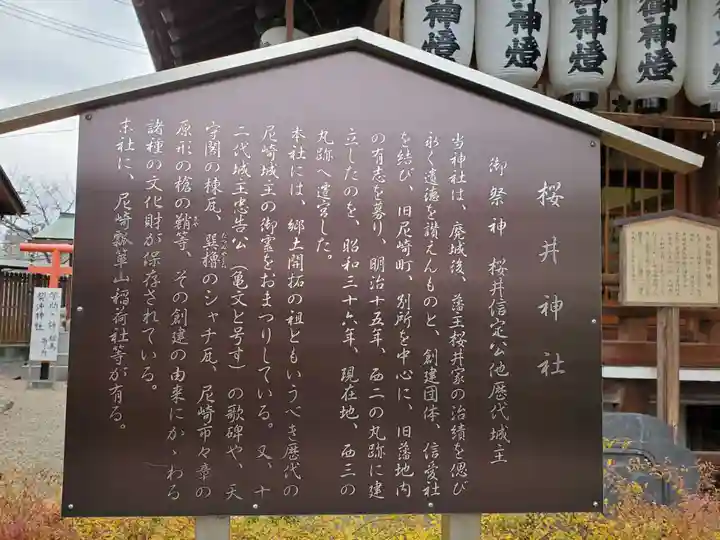 桜井神社
御祭神 桜井信定公他歴代城主
当神社は、廃城後、藩主桜井家の治績を偲び
永く遺徳を讃えんものと、創建団体、信愛社
を結び、旧尼崎町、別所を中心に、旧藩地内
の有志を募り、明治十五年、西二の丸跡に建
立したのを、昭和三十六年、現在地、西三の
丸跡へ遷宮した。
本社には、郷土開拓の祖ともいうべき歴代の
尼崎城主の御霊をおまつりしている。又、十
二代城主忠告公(亀文と号す)の歌碑や、天
守閣の棟瓦、巽櫓のシャチ瓦、尼崎市々章の
原形の槍の鞘等、その創建の由来にかゝわる
諸種の文化財が保存されている。
末社に、尼崎瓢箪山稲荷社等が有る。
御神燈
御神燈
御神燈
御神燈